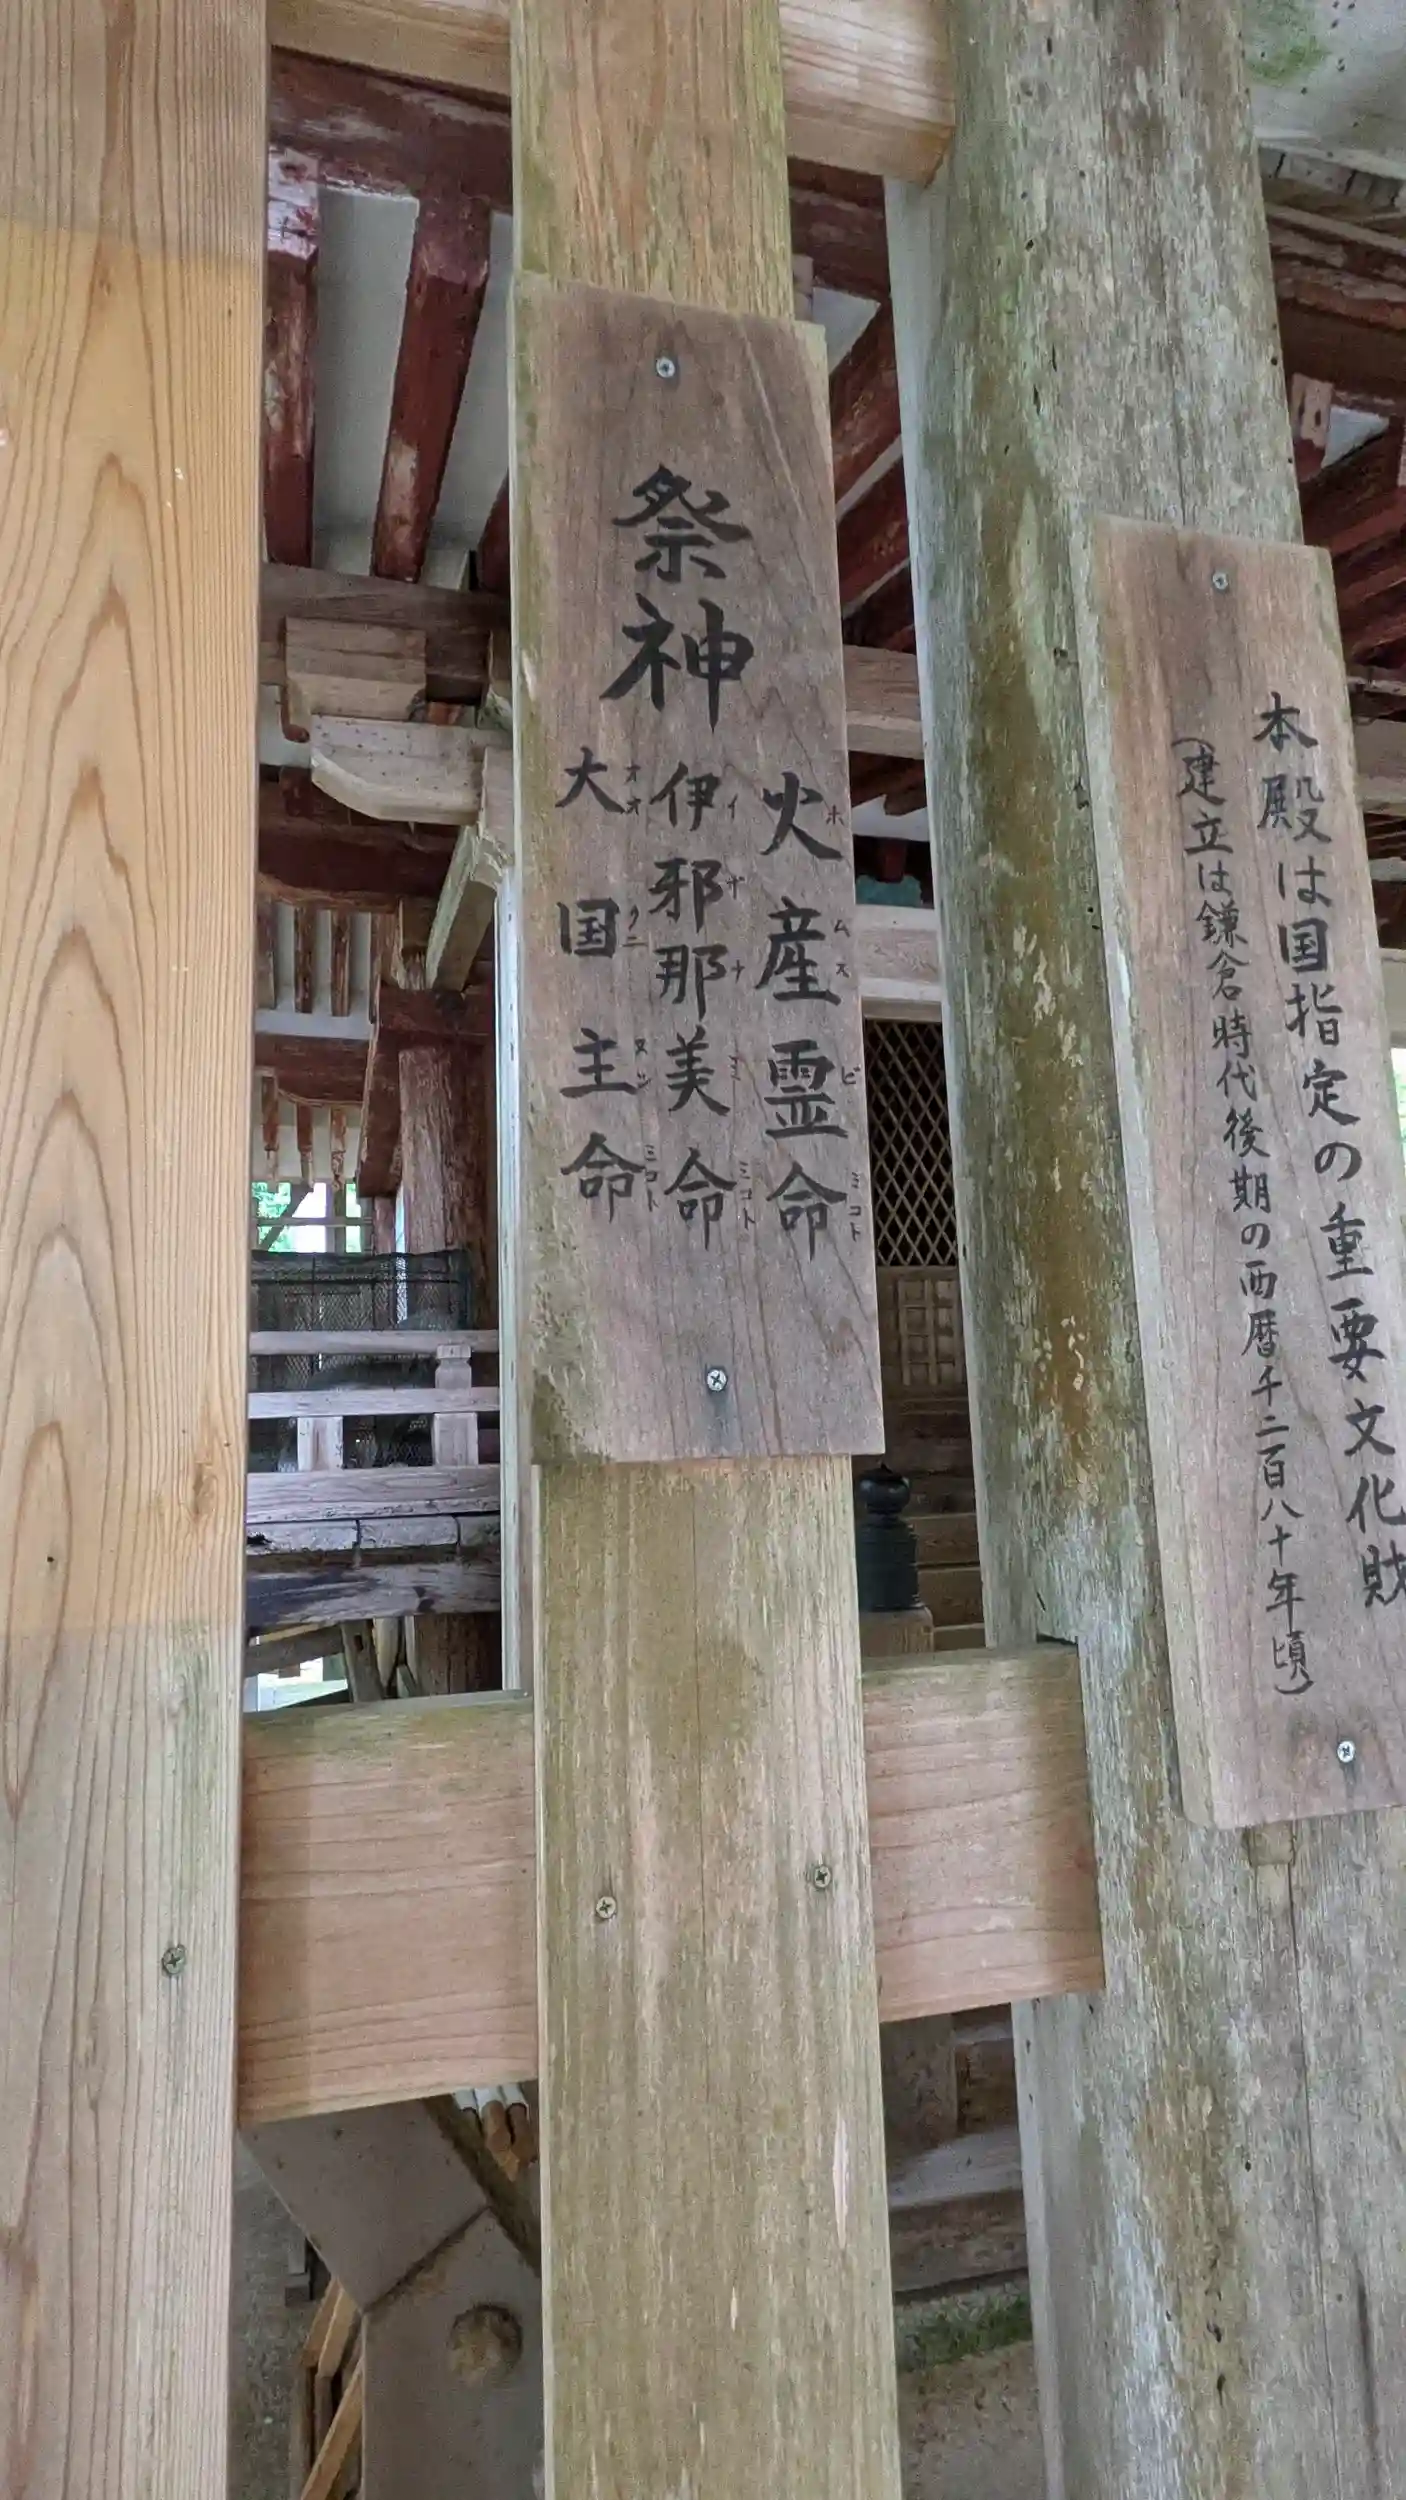 本殿は国指定の重要文化財
（建立は鎌倉時代後期の西暦千二百八十年頃）
祭神
火産霊命
ホムスビミコト
伊邪那美命
イザナミミコト
大国主命
オオクニヌシミコト